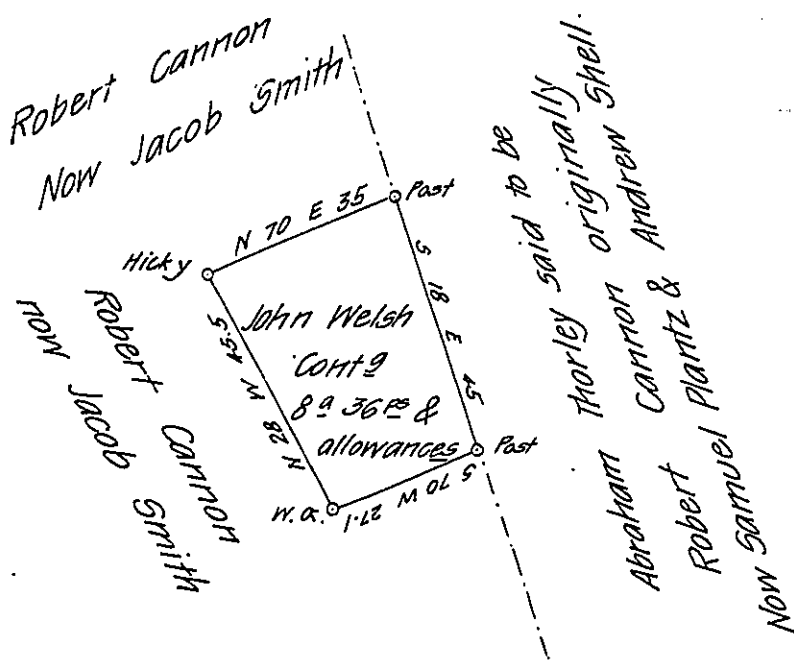 Robert Cannon
Now Jacob Smith
N 70 E 35
Post
Hicky
S 18 E 45
N 28 W 45.5
John Welsh
Contg
8a 36ps &
allowances
Post
W.O.
S 70 W 27.1
Robert Cannon
now Jacob Smith
Abraham Thorley said to be
Robert Cannon originally
Now Samuel Plantz & Andrew Shell.